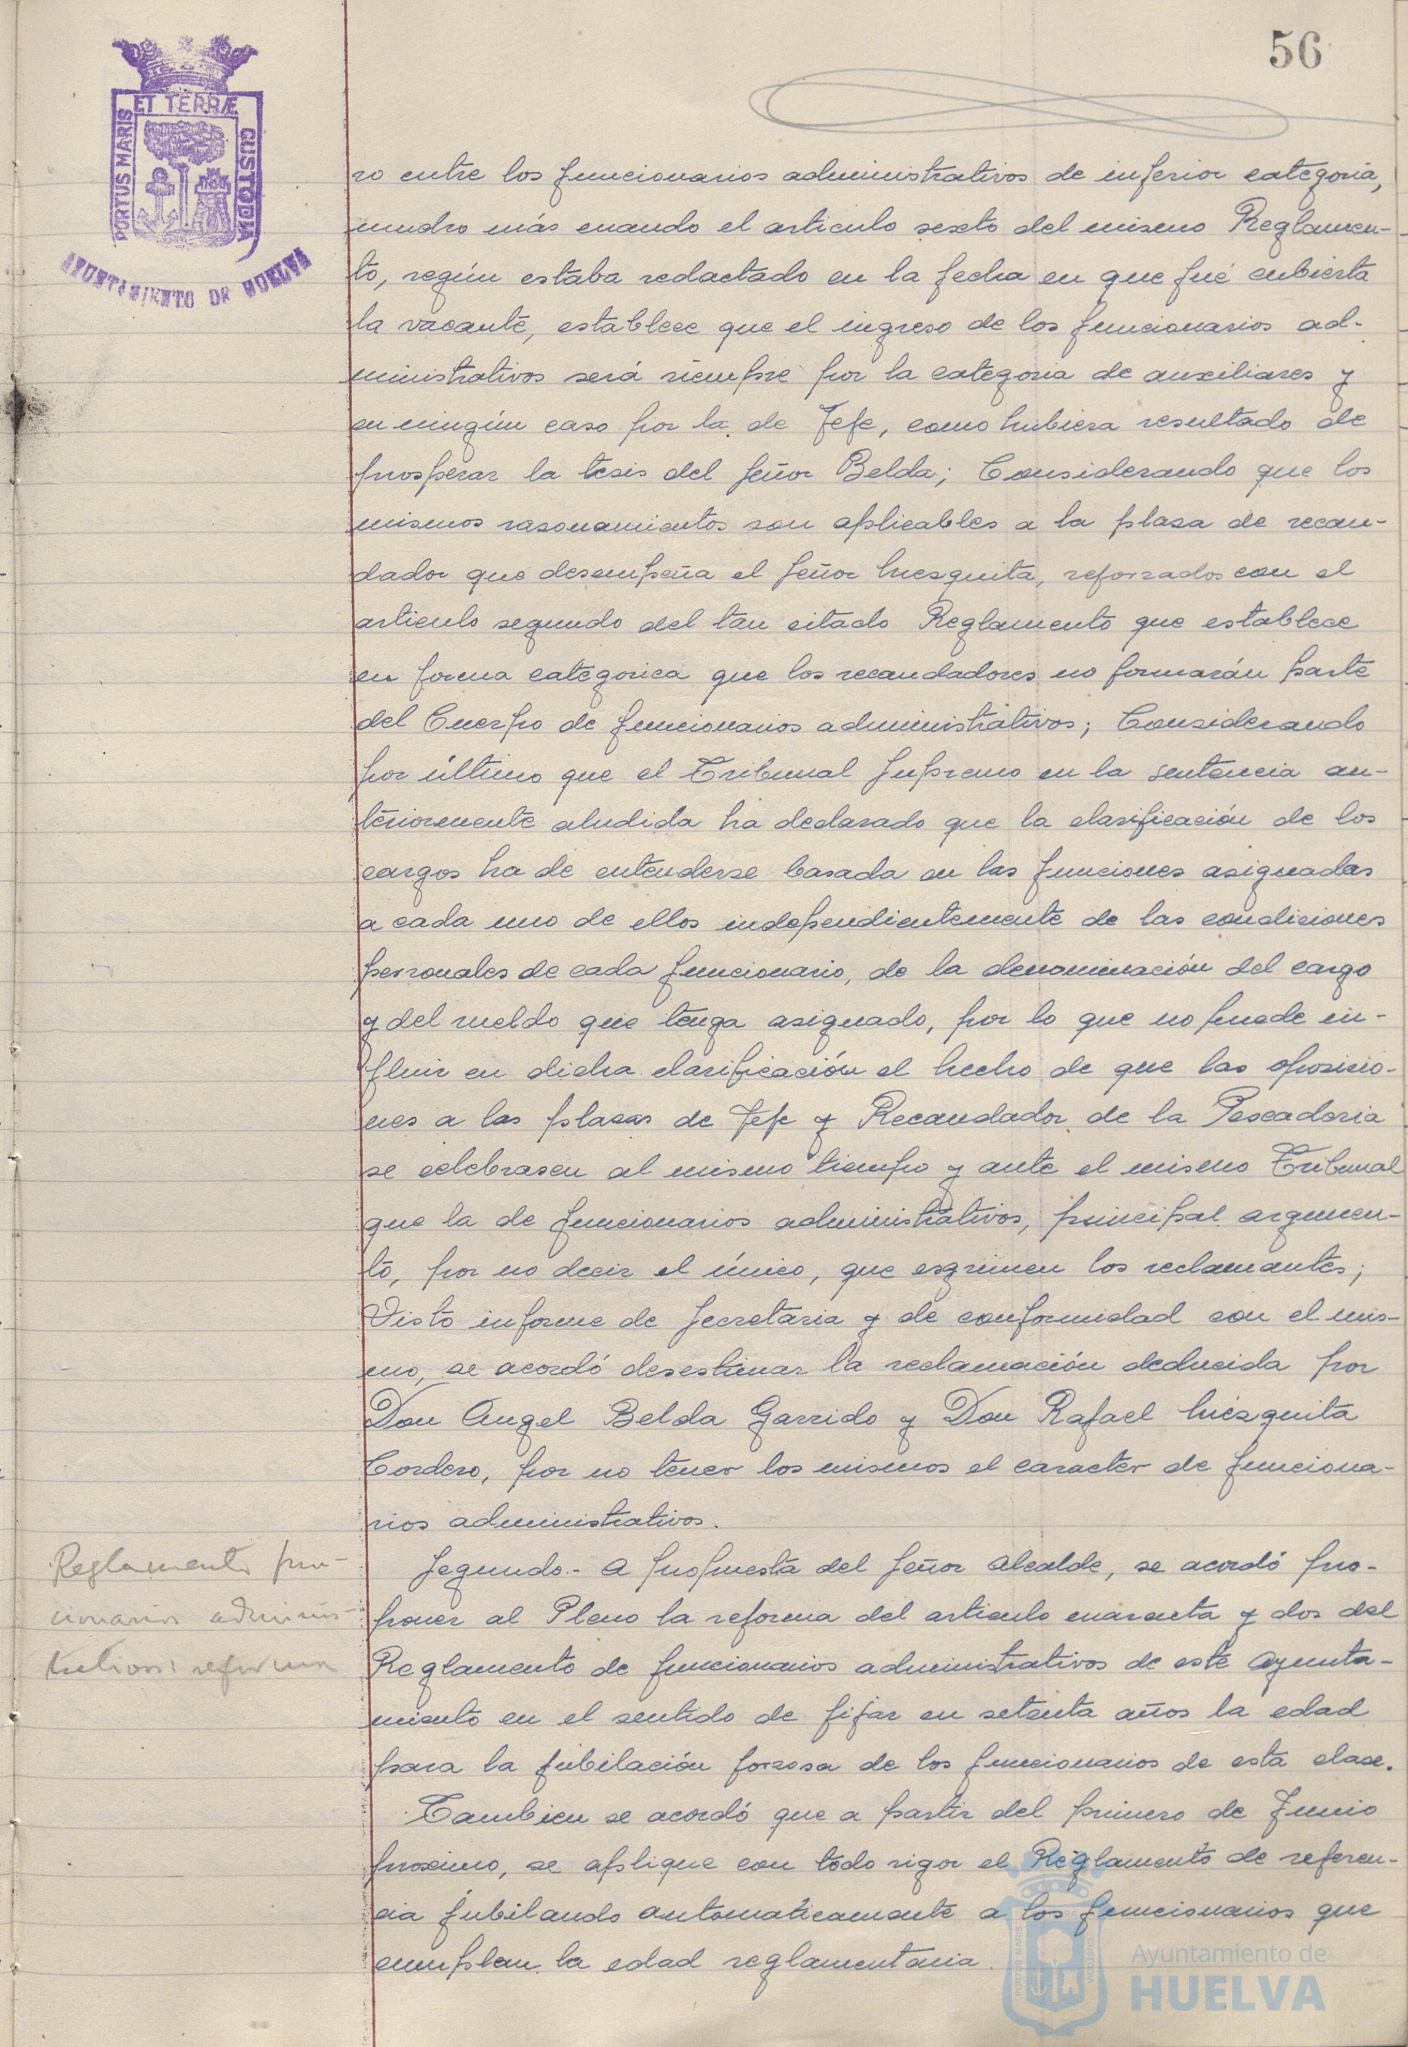 56
ET TERRÆ
PORTUS MARIS
CUSTODIA
AYUNTAMIENTO DE HUELVA
ro entre los funcionarios administrativos de inferior categoria,
mucho más cuando el articulo sexto del mismo Reglamen-
to, según estaba redactado en la fecha en que fué cubierta
la vacante, establece que el ingreso de los funcionarios ad-
ministrativos será siempre por la categoria de auxiliares y
en ningún caso por la de Jefe, como hubiera resultado de
prosperar la tesis del Señor Belda; Considerando que los
mismos razonamientos son aplicables a la plaza de recau-
dador que desempeña el Señor Mezquita, reforzados con el
articulo segundo del tan citado Reglamento que establece
en forma categorica que los recaudadores no formarán parte
del Cuerpo de funcionarios administrativos; Considerando
por último que el Tribunal Supremo en la sentencia an-
teriormente aludida ha declarado que la clasificación de los
cargos ha de entenderse basada en las funciones asignadas
a cada uno de ellos independientemente de las condiciones
personales de cada funcionario, de la denominación del cargo
y del sueldo que tenga asignado, por lo que no puede in-
fluir en dicha clasificación el hecho de que las oposicio-
nes a las plazas de Jefe y Recaudador de la Pescaderia
se celebrasen al mismo tiempo y ante el mismo Tribunal
que la de funcionarios administrativos, principal argumen-
to, por no decir el único, que esgrimen los reclamantes;
Visto informe de Secretaria y de conformidad con el mis-
mo, se acordó desestimar la reclamación deducida por
Don Angel Belda Garrido y Don Rafael Mezquita
Cordero, por no tener los mismos el caracter de funciona-
rios administrativos.
Reglamento fun-
cionarios adminis-
trativos: reforma
Segundo.- A propuesta del Señor Alcalde, se acordó pro-
poner al Pleno la reforma del articulo cuarenta y dos del
Reglamento de funcionarios administrativos de este Ayunta-
miento en el sentido de fijar en setenta años la edad
para la jubilación forzosa de los funcionarios de esta clase.
Tambien se acordó que a partir del primero de Junio
proximo, se aplique con todo rigor el Reglamento de referen-
cia jubilando automaticamente a los funcionarios que
cumplan la edad reglamentaria.
Ayuntamiento de
HUELVA